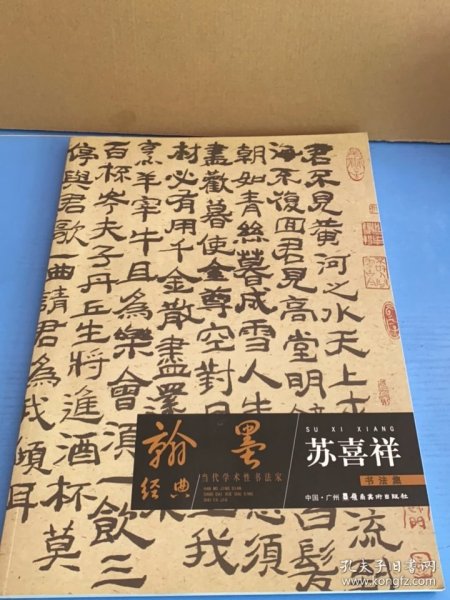 君不見黃河之水天上
流到
海不復回君見高堂明
白髮
朝如青絲暮成雪人生
須
盡歡暮使金尊空對
我
材必有用千金散盡
烹羊宰牛且為樂會須一飲三
百杯岑夫子丹丘生將進酒杯莫
停與君歌一曲請君為我傾耳
翰墨
经典
当代学术性书法家
HAN MO JING DIAN
DANG DAI XUE SHU XING
SHU FA JIA
SU XI XIANG
苏喜祥
书法集
中国·广州 嶺南美术出版社
孔夫子旧书网
www.kongfz.com